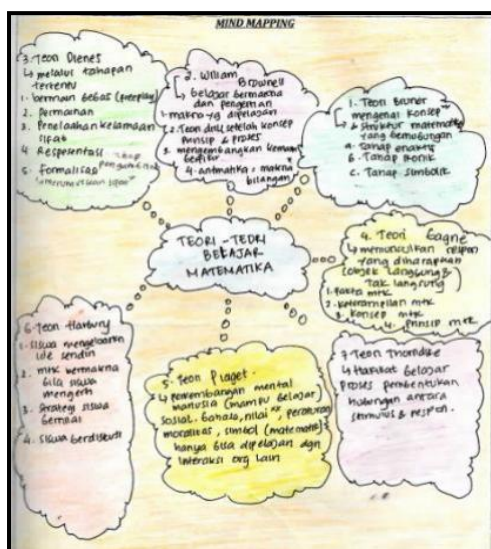 MIND MAPPING
3. Teori Dienes
↳ melalui tahapan
tertentu
1. bermain bebas (freeplay)
2. Permainan
3. Penelaahan kesamaan
sifat
4. Respresentasi
5. Formalisasi
2. William
Brownell
↳ belajar bermakna
dan pengertian
1. makna yg dipelajari
2. Teori drill setelah konsep
prinsip & proses
3. mengembangkan
berfikir
4. aritmatika, makna
bilangan
1. Teori Bruner
mengenai konsep
↳ & struktur matematika
yang berhubungan
a. Tahap enaktif
b. Tahap ikonik
c. Tahap simbolik
TEORI-TEORI
BELAJAR
MATEMATIKA
4. Teori Gagne
↳ memunculkan respon
yang diharapkan
(objek langsung &
tak langsung)
1. Fakta mtk
2. keterampilan mtk
3. konsep mtk
4. Prinsip mtk
6. Teori
1. siswa mengeluarkan
ide sendiri
2. mtk bermakna
bila siswa
mengerti
3. strategi siswa
4. siswa berdiskusi
5. Teori Piaget.
↳ perkembangan mental
manusia (mampu belajar)
sosial, bahasa, nilai", peraturan
moralitas, simbol (matematik)
hanya bisa dipelajari dgn
interaksi org lain
7. Teori Thorndike
↳ Hakikat belajar
proses pembentukan
hubungan antara
stimulus & respon.